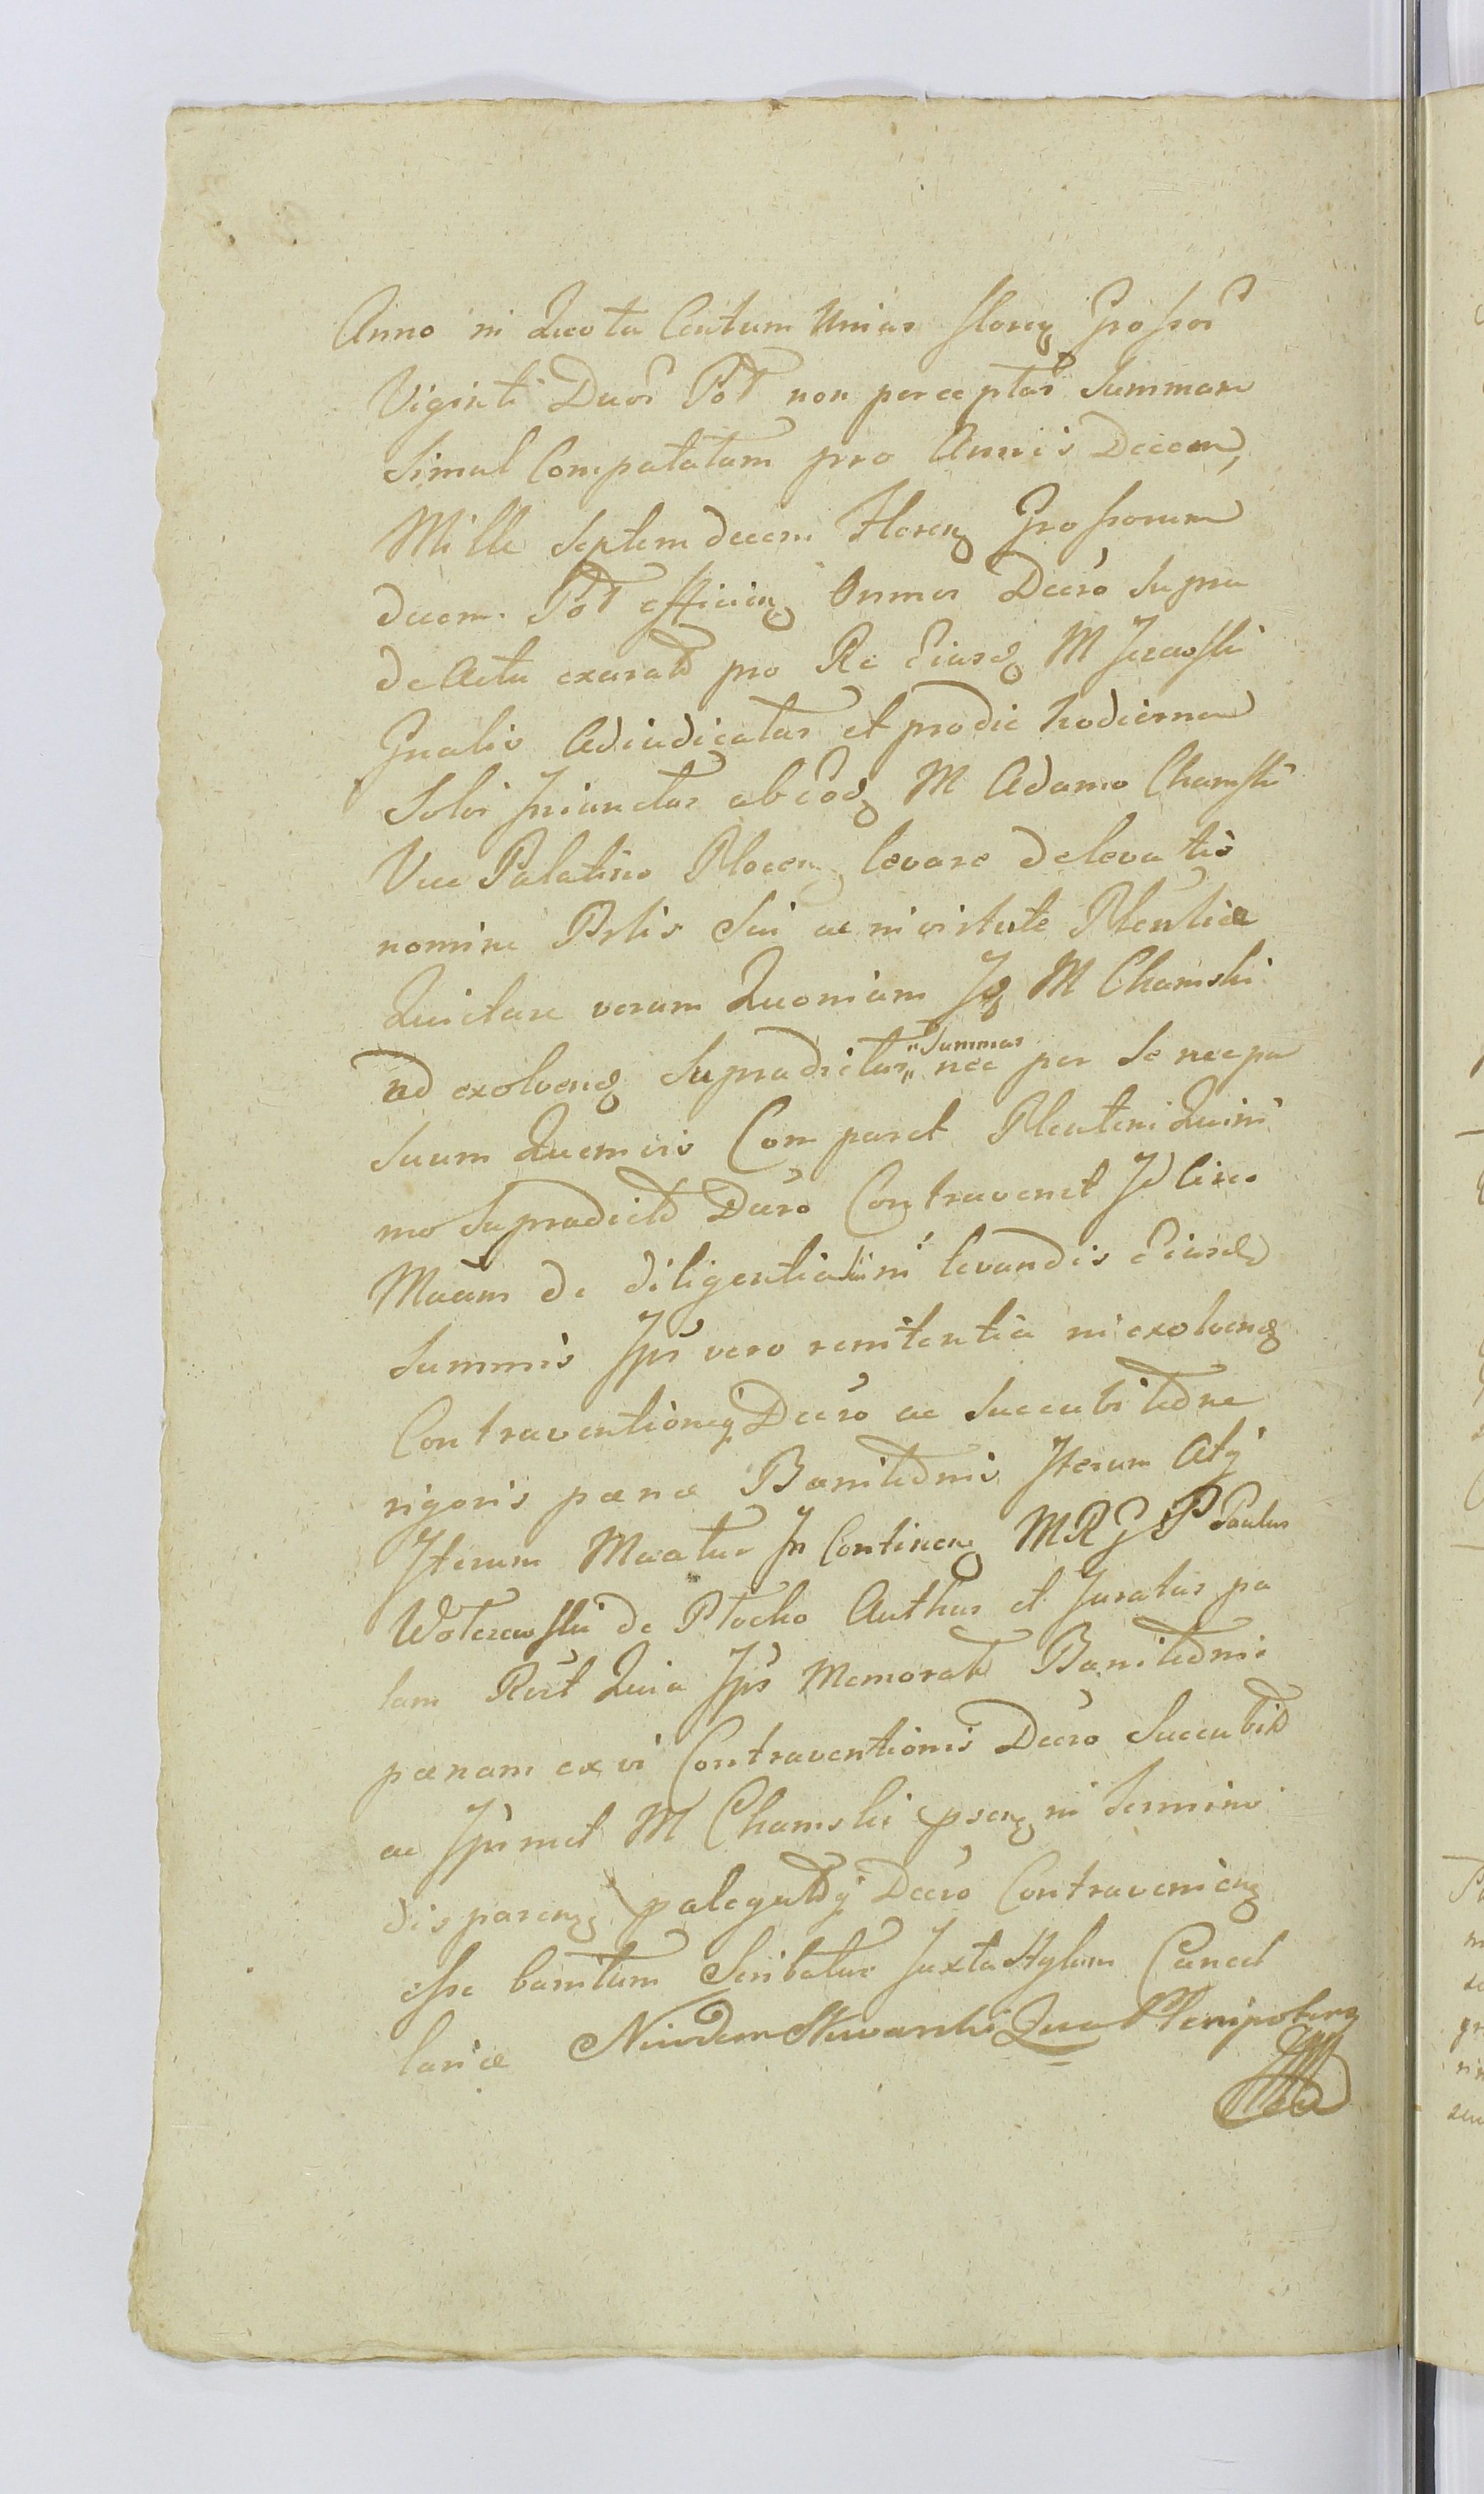 Anno in Quota Centum Unius floreņ Grossor
Viginti Duor Pol non perceptas Summam
Simul Computatam pro Annis Decem,
Mille Septemdecem Floreņ Grossorum
decem Pol efficien Omnes Decro Supra
de Actu exarato pro Re Eiusd M
Gnalis Adiudicatas et pro die hodierna
Solvi Iniunctas ab eod M Adamo Chamski
Vice Palatino Plocen levare de levatis
nomine Prlis Sui ac in virtute Plentiæ
Quietare verum Quoniam Id M Chamski
ad exolvend Supradictas „Summas„ nec per Se nec per
Suum Quemvis Comparet Plenten Quini
mo Supradicto Decro Contravenit Id circo
Maam de diligentia Sui in levandis Eisd
Summis Ips vero renitentia in exolvend
Contraventioneq Decro ac Succubitione
rigoris pænæ Banitionis Iterum Atq
Iterum Maatur In Continen MRGP Paulus
de Plocko Authus et Juratus pa
lam Rect Quia Ips Memorat Banitionis
pænam ex vi Contraventionis Decro Succubit
ac Ipsmet M Chamski psen in Termino
disparen Decro Contravenien
esse banitum Scribatur Juxta Stylum Cancel
lariæ Qua Plenipoten